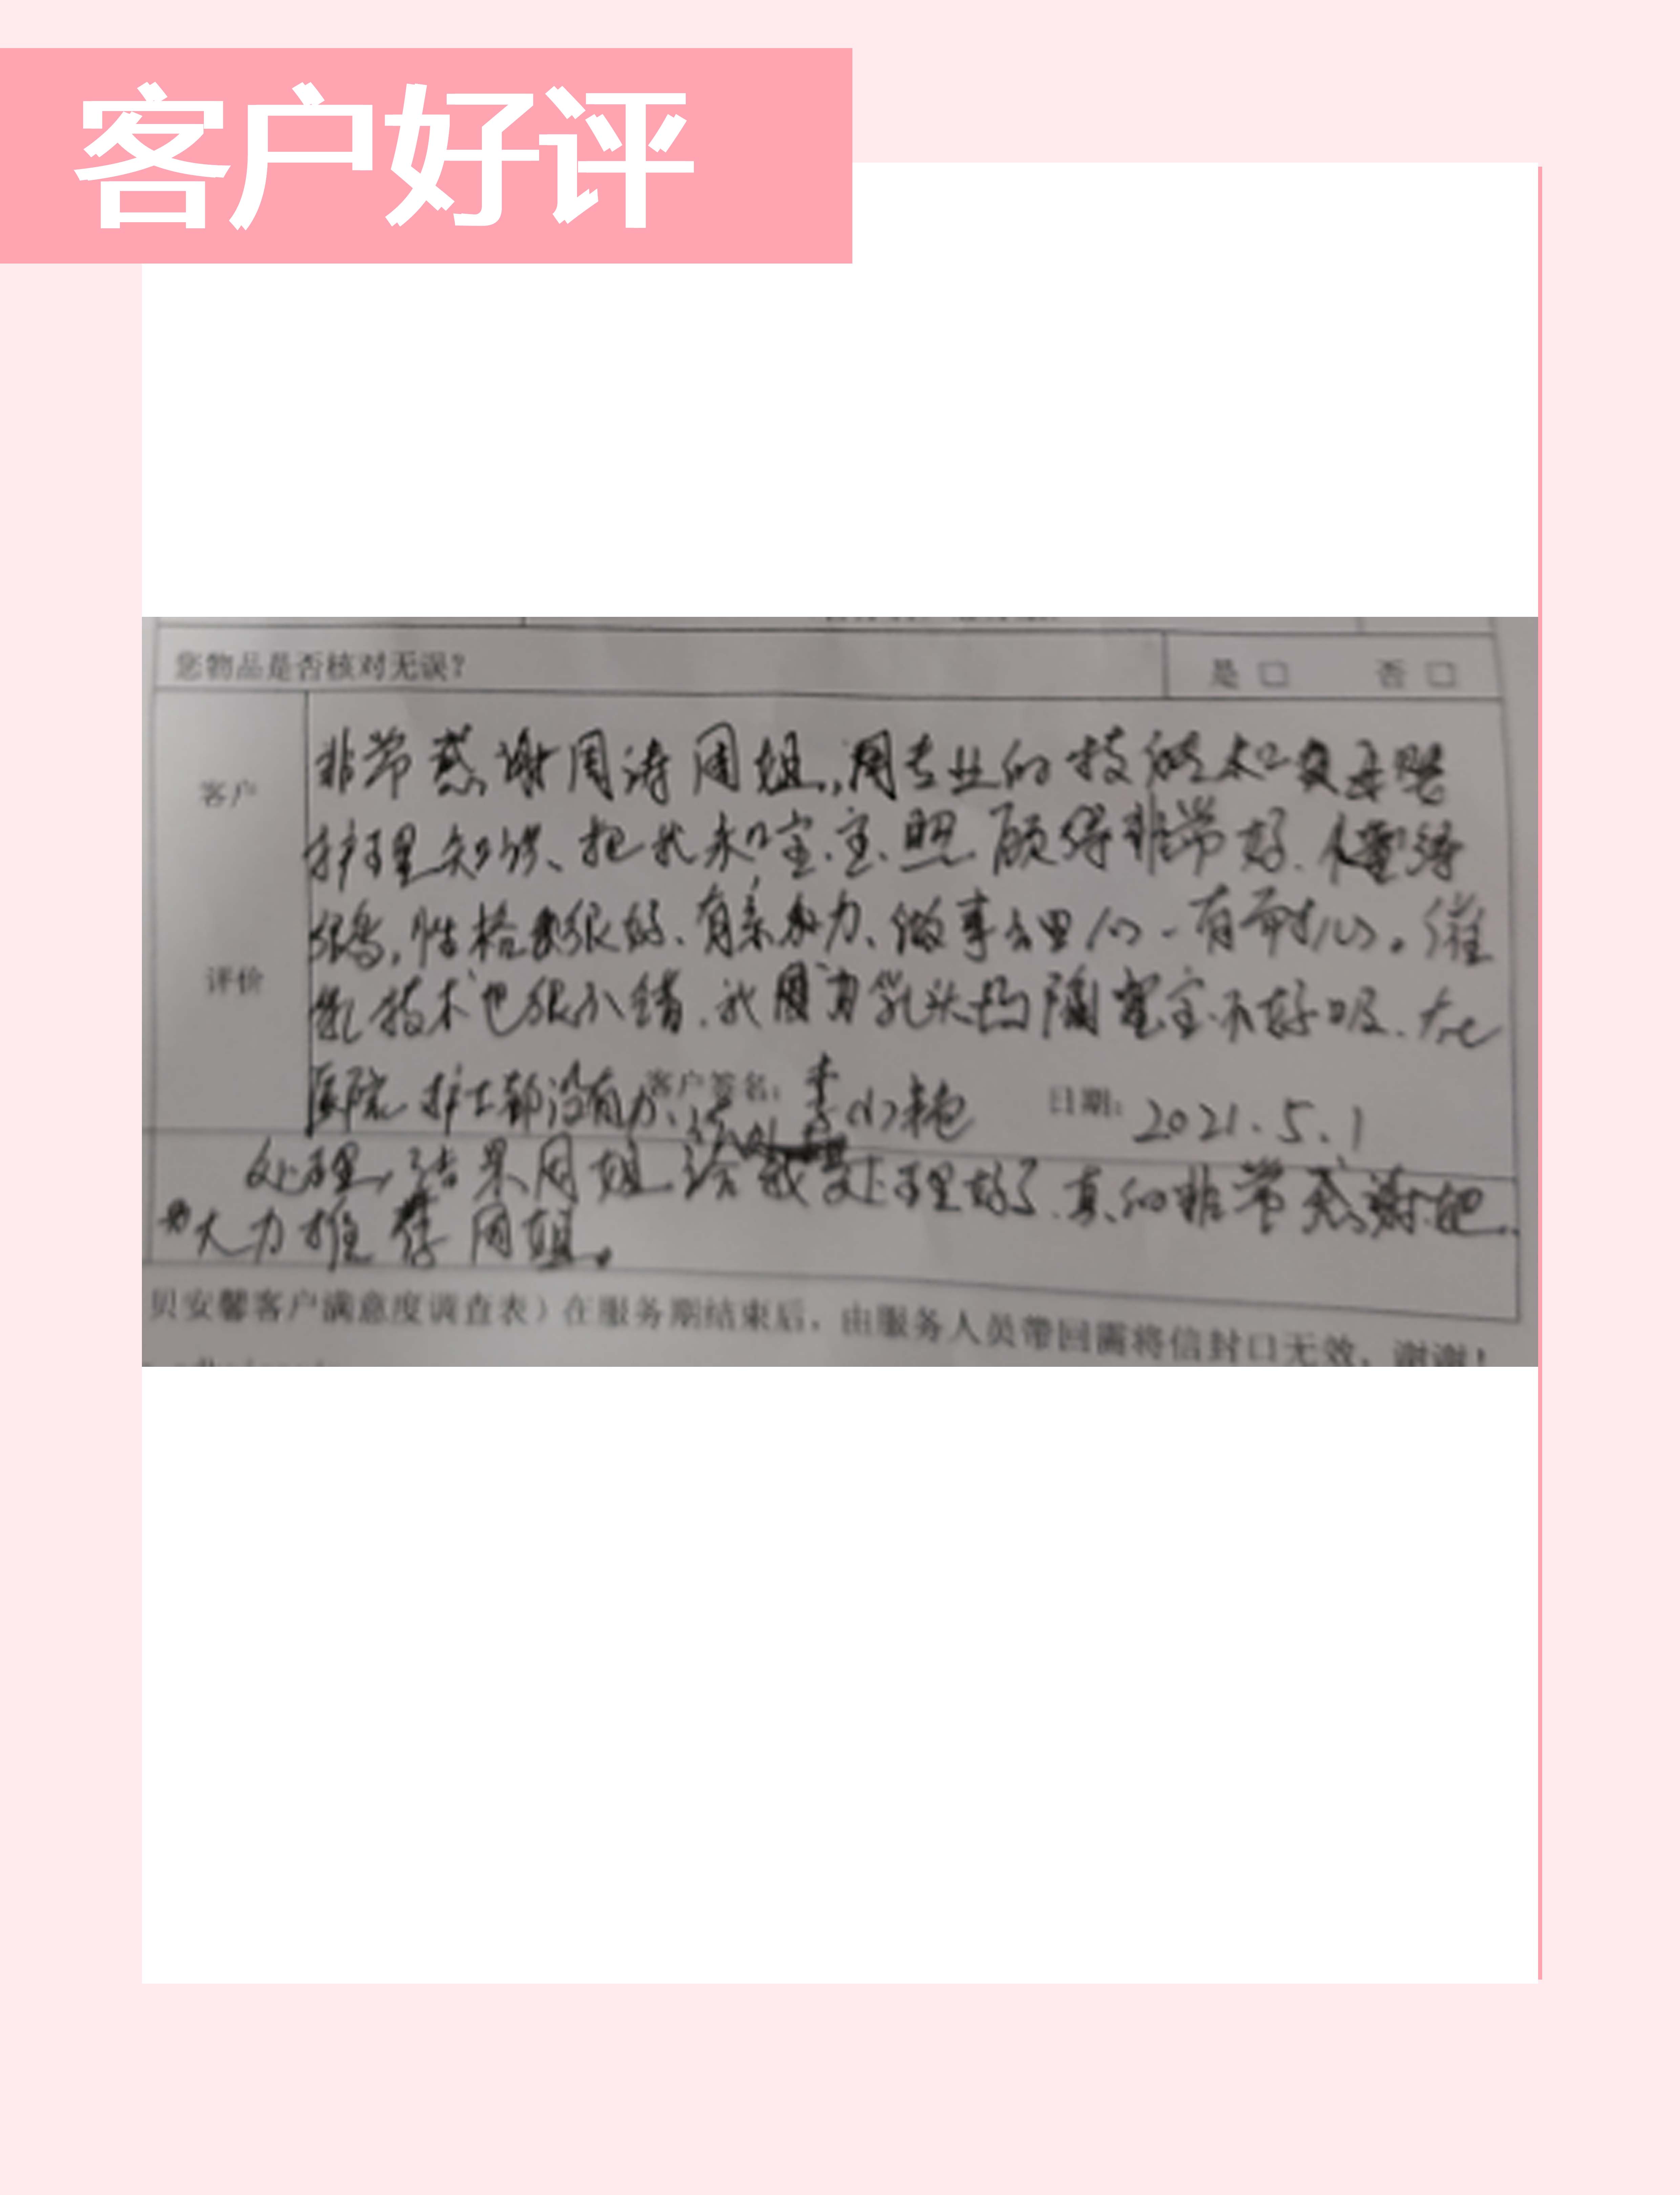 客户好评
您物品是否核对无误？ 是 □ 否 □
客户
评价
非常感谢周涛周姐，用专业的技能和
护理知识、把我和宝宝照顾得非常好.
性格很好、有亲和力、做事 有耐心。催
乳技术也很不错.我 乳头凹陷宝宝不好吸.在
医院护士都没有办法
客户签名：李小艳 日期：2021.5.1
处理，结果周姐给我处理好了.真的非常感谢她.
大力推荐周姐。
贝安馨客户满意度调查表）在服务期结束后，由服务人员带回需将信封口无效，谢谢！